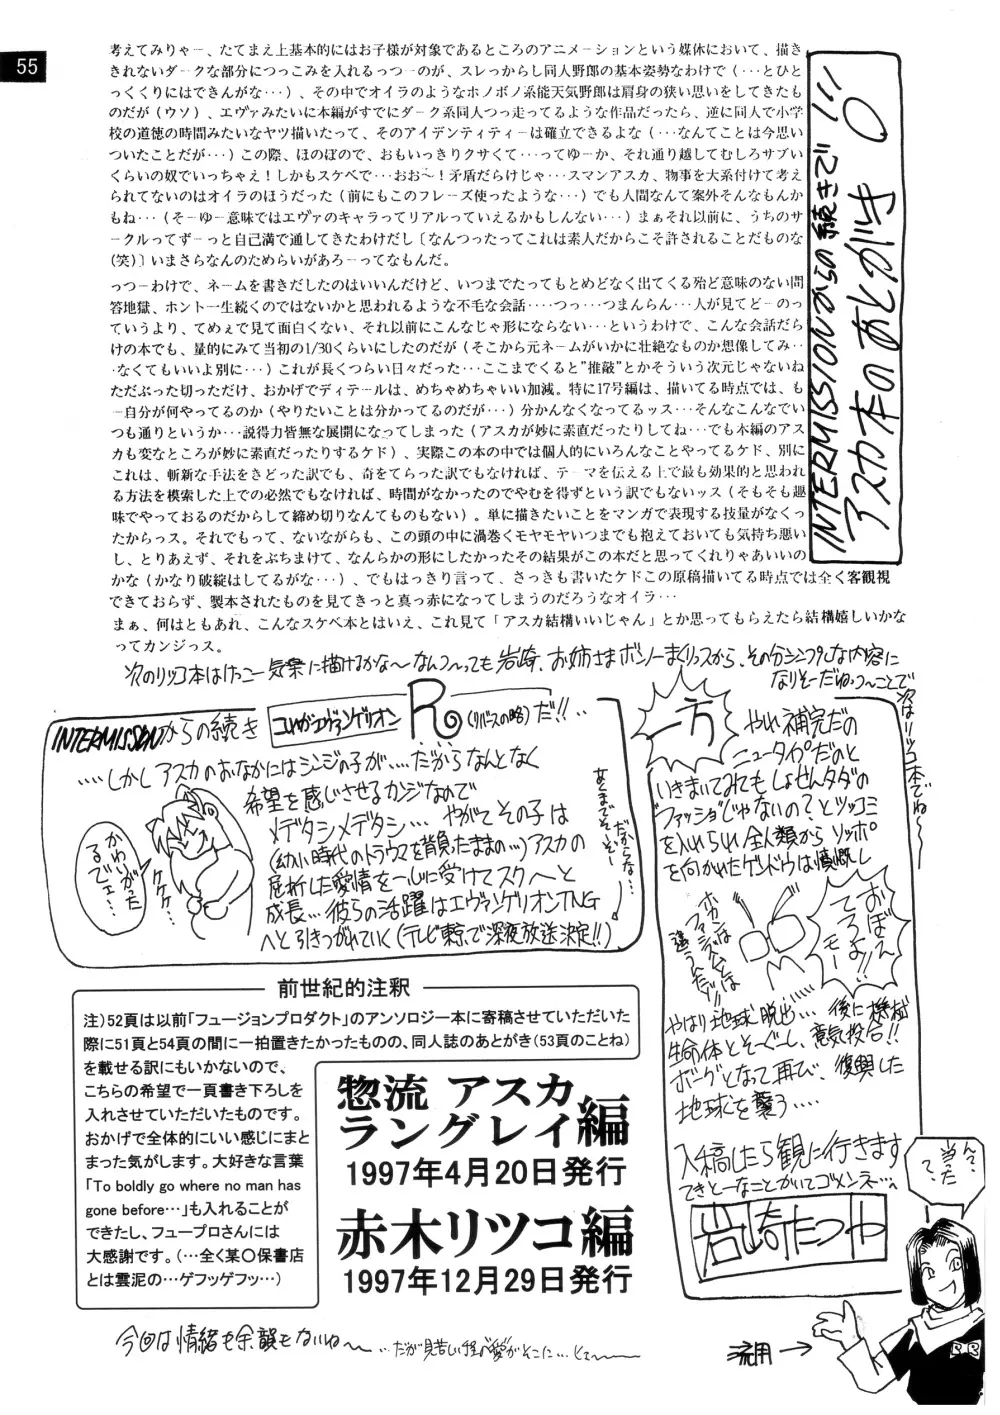 55
INTERMISSIONからの続きで…
アスカ本のあとがき
考えてみりゃー、たてまえ上基本的にはお子様が対象であるところのアニメーションという媒体において、描き
きれないダークな部分につっこみを入れるっつーのが、スレっからし同人野郎の基本姿勢なわけで（…とひと
っくくりにはできんがな…）、その中でオイラのようなホノボノ系能天気野郎は肩身の狭い思いをしてきたも
のだが（ウソ）、エヴァみたいに本編がすでにダーク系同人つっ走ってるような作品だったら、逆に同人で小学
校の道徳の時間みたいなヤツ描いたって、そのアイデンティティーは確立できるよな（…なんてことは今思い
ついたことだが…）この際、ほのぼので、おもいっきりクサくて…ってゆーか、それ通り越してむしろサブい
くらいの奴でいっちゃえ！しかもスケベで…おお〜！矛盾だらけじゃ…スマンアスカ、物事を大系付けて考え
られてないのはオイラのほうだった（前にもこのフレーズ使ったような…）でも人間なんて案外そんなもんか
もね…（そーゆー意味ではエヴァのキャラってリアルっていえるかもしんない…）まぁそれ以前に、うちのサ
ークルってずーっと自己満で通してきたわけだし〔なんつったってこれは素人だからこそ許されることだものな
(笑)〕いまさらなんのためらいがあろーってなもんだ。
っつーわけで、ネームを書きだしたのはいいんだけど、いつまでたってもとめどなく出てくる殆ど意味のない問
答地獄、ホント一生続くのではないかと思われるような不毛な会話‥‥つっ…つまんらん…人が見てどーのっ
ていうより、てめぇで見て面白くない、それ以前にこんなじゃ形にならない…というわけで、こんな会話だら
けの本でも、量的にみて当初の1/30くらいにしたのだが（そこから元ネームがいかに壮絶なものか想像してみ‥
‥なくてもいいよ別に…）これが長くつらい日々だった…ここまでくると"推敲"とかそういう次元じゃないね
ただぶった切っただけ、おかげでディテールは、めちゃめちゃいい加減。特に17号編は、描いてる時点では、も
ー自分が何やってるのか（やりたいことは分かってるのだが…）分かんなくなってるッス…そんなこんなでい
つも通りというか…説得力皆無な展開になってしまった（アスカが妙に素直だったりしてね…でも本編のアス
カも変なところが妙に素直だったりするケド）、実際この本の中では個人的にいろんなことやってるケド、別に
これは、斬新な手法をきどった訳でも、奇をてらった訳でもなければ、テーマを伝える上で最も効果的と思われ
る方法を模索した上での必然でもなければ、時間がなかったのでやむを得ずという訳でもないッス（そもそも趣
味でやっておるのだからして締め切りなんてものもない）。単に描きたいことをマンガで表現する技量がなくっ
たからッス。それでもって、ないながらも、この頭の中に渦巻くモヤモヤいつまでも抱えておいても気持ち悪い
し、とりあえず、それをぶちまけて、なんらかの形にしたかったその結果がこの本だと思ってくれりゃあいいの
かな（かなり破綻はしてるがな…）、でもはっきり言って、さっきも書いたケドこの原稿描いてる時点では全く客観視
できておらず、製本されたものを見てきっと真っ赤になってしまうのだろうなオイラ…
まぁ、何はともあれ、こんなスケベ本とはいえ、これ見て「アスカ結構いいじゃん」とか思ってもらえたら結構嬉しいかな
ってカンジっス。
次のリツコ本はけっこー気楽に描けるかな〜なんつっても岩崎、お姉さまボンノーまくりっスから、その分シンプルな内容に
なりそーだねっつーことで
次はリツコ本でね〜
INTERMISSIONからの続き
コレがエヴァンゲリオン
R(リバースの略)だ!!‥
‥‥しかしアスカのおなかにはシンジの子が‥‥だからなんとなく
希望を感じさせるカンジなので
メデタシメデタシ… やがてその子は
(幼い時代のトラウマを背負たままの…)アスカの
屈折した愛情を一心に受けてスクスクと
成長…彼らの活躍はエヴァンゲリオンTNG
へと引きつがれていく(テレビ東京で深夜放送決定!!)
かわいがったるでェ…
ケケケ…
一方
やれ補完だの
ニュータイプだのと
いきまいてみてもしょせんタダの
ファッショじゃないの？とツッコミ
を入れられ全人類からソッポ
を向かれたゲンドウは憤慨し
おぼえてろよ!!
モー
やはり地球脱出… 後に機械
生命体とそーぐーし、意気投合!!
ボーグとなって再び、復興した
地球を襲う‥‥
入稿したら観に行きます
てきとーなことかいてゴメンネ…
岩崎たつや
んで、当ったて、
流用→
前世紀的注釈
注）52頁は以前「フュージョンプロダクト」のアンソロジー本に寄稿させていただいた
際に51頁と54頁の間に一拍置きたかったものの、同人誌のあとがき（53頁のことね）
を載せる訳にもいかないので、
こちらの希望で一頁書き下ろしを
入れさせていただいたものです。
おかげで全体的にいい感じにまと
まった気がします。大好きな言葉
「To boldly go where no man has
gone before…」も入れることが
できたし、フュープロさんには
大感謝です。（…全く某〇保書店
とは雲泥の…ゲフッゲフッ…）
惣流 アスカ
ラングレイ編
1997年4月20日発行
赤木リツコ編
1997年12月29日発行
今回は情緒も余韻もないね〜
‥だが見苦しい程の"愛"がそこに…